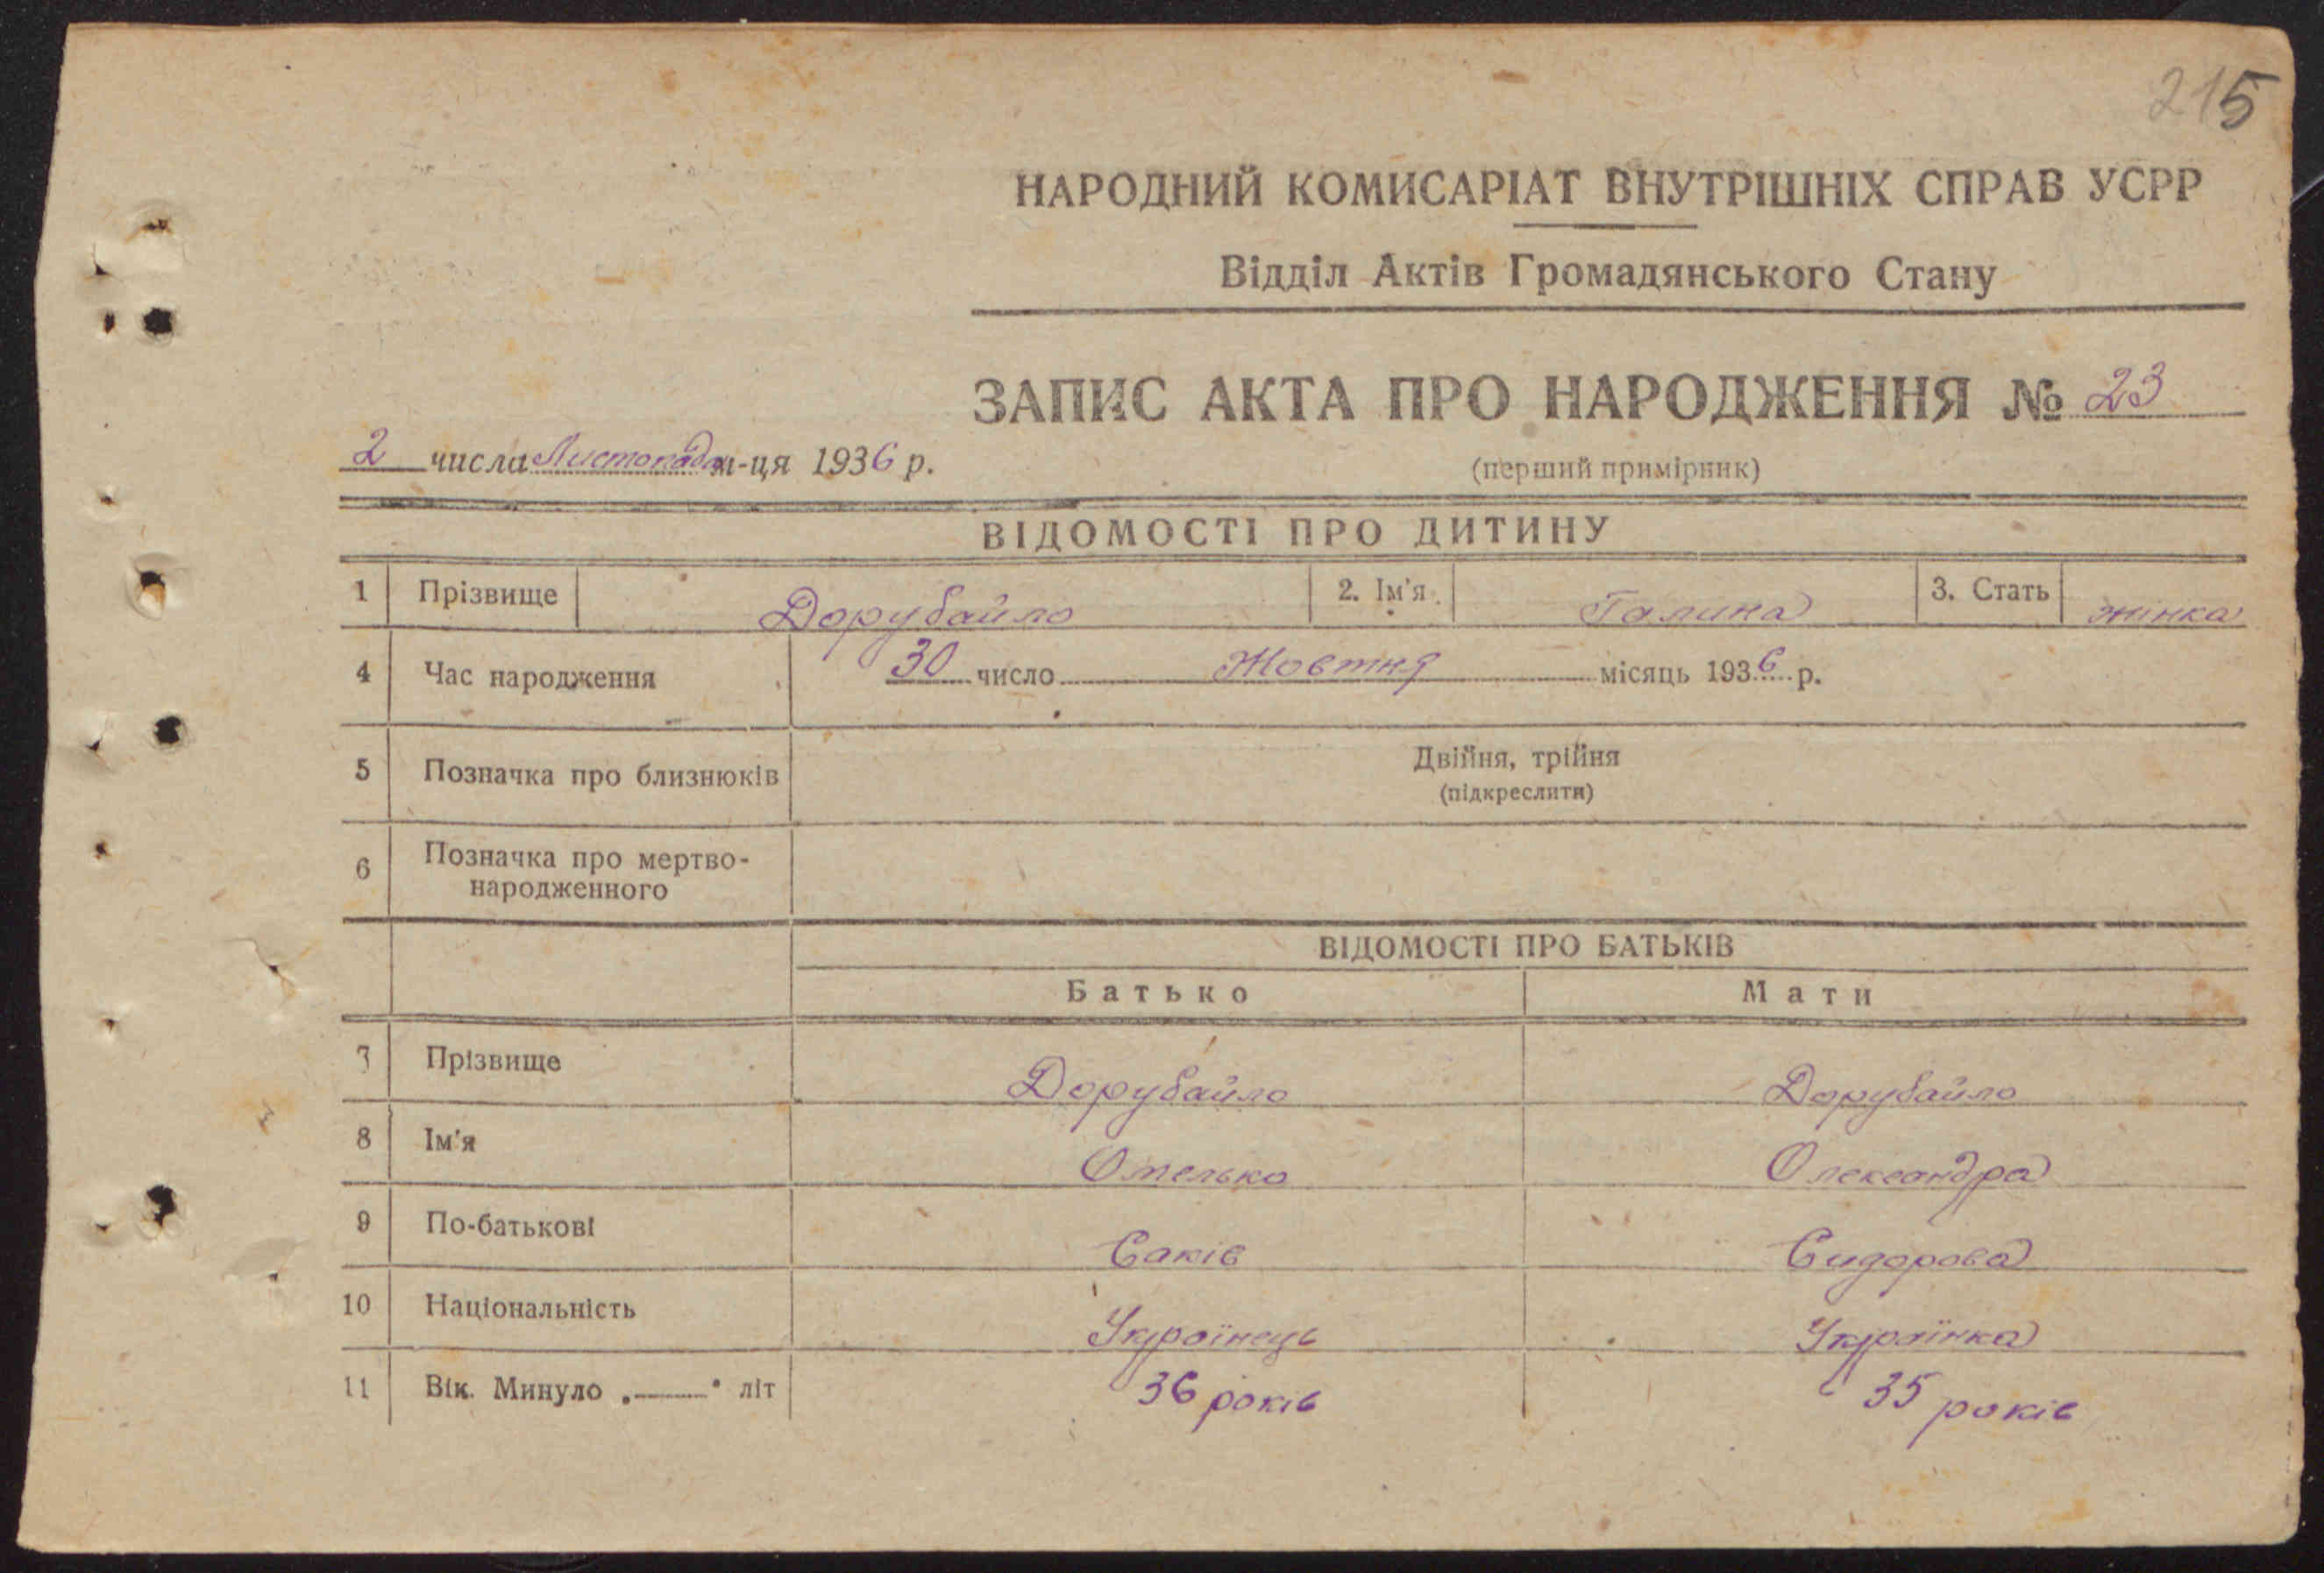 215
НАРОДНИЙ КОМИСАРІАТ ВНУТРІШНІХ СПРАВ УСРР
Відділ Актів Громадянського Стану
ЗАПИС АКТА ПРО НАРОДЖЕННЯ № 23
2 числа Листопада м-ця 1936 р.
(перший примірник)
ВІДОМОСТІ ПРО ДИТИНУ
1 Прізвище Дорубайло 2. Ім'я Галина 3. Стать жінка
4 Час народження 30 число Жовтня місяць 1936 р.
5 Позначка про близнюків Двійня, трійня
(підкреслити)
6 Позначка про мертво-
народженного
ВІДОМОСТІ ПРО БАТЬКІВ
Батько Мати
7 Прізвище Дорубайло Дорубайло
8 Ім'я Омелько Олександра
9 По-батькові Саків Сидорова
10 Національність Українець Українка
11 Вік. Минуло „——" літ 36 років 35 років